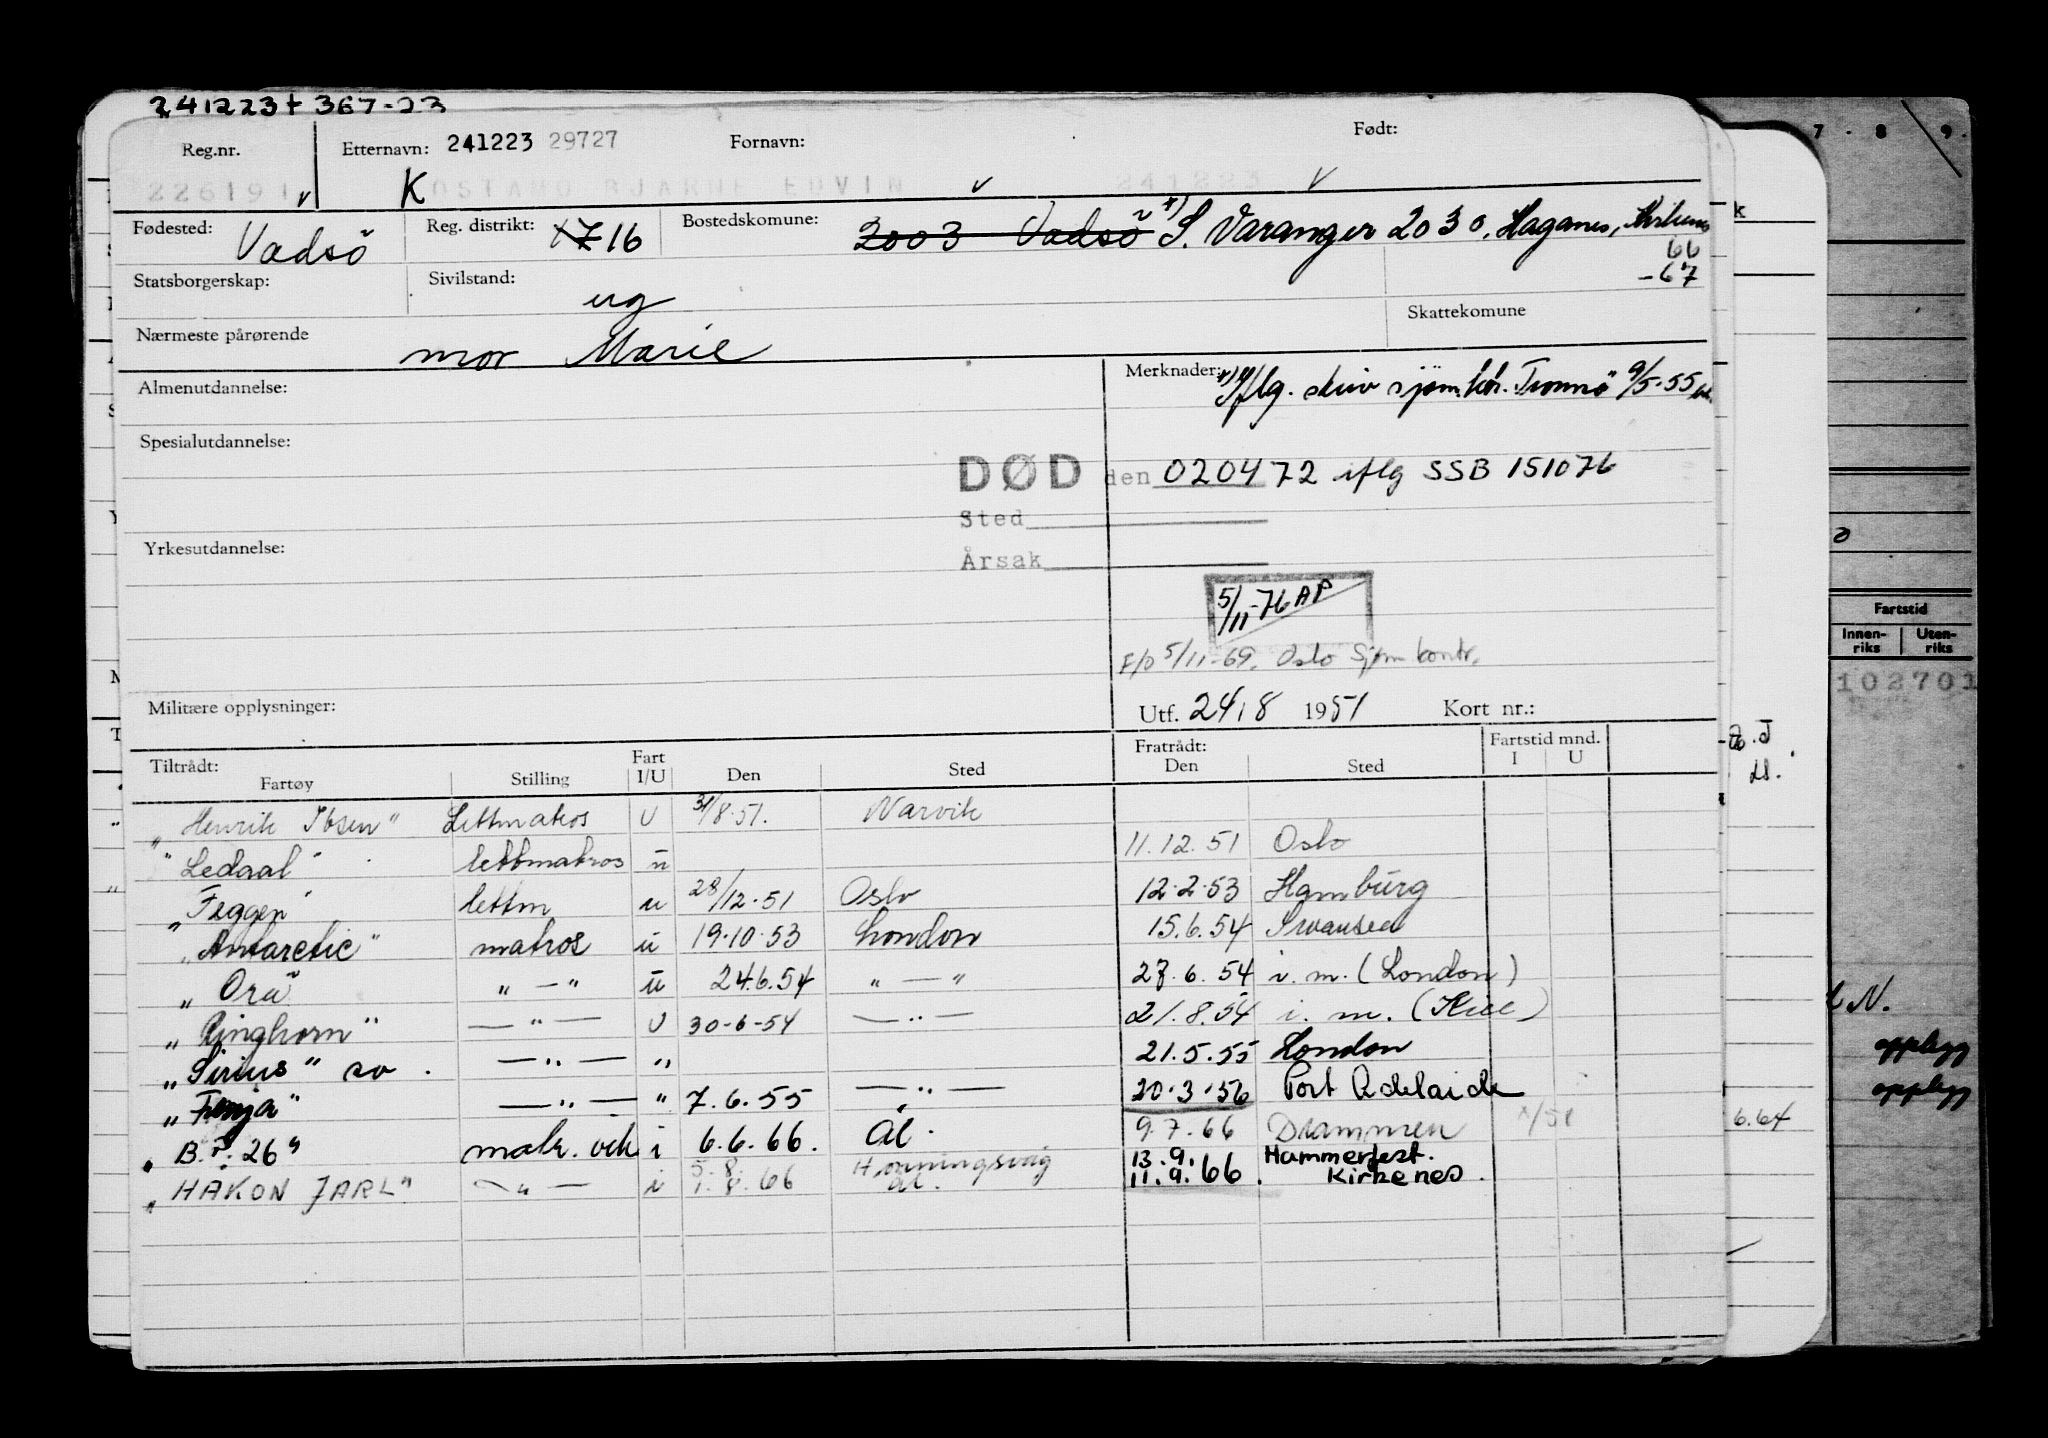 241223+ 367-23
Reg.nr. Etternavn: 241223 29727 Fornavn: Født:
226191 v KOSTAMO BJARNE EDVIN v 241223 v
Fødested: Vadsö Reg. distrikt: 16 Bostedskomune: 2003 Vadsö x) S. Varanger 2030, Haganes,
66
-67
Statsborgerskap: Sivilstand: ug
Skattekomune
Nærmeste pårørende mor Marie
Almenutdannelse:
Merknader: x) Iflg. skriv sjöm.ktr. Tromsö 9/5-55
Spesialutdannelse:
DØD den 020472 iflg SSB 151076
Sted
Yrkesutdannelse:
Årsak
5/11-76 AP
F/O 5/11-69. Oslo Sjøm kontr.
Militære opplysninger:
Utf. 24/8 1951 Kort nr.:
Tiltrådt: Fratrådt: Fartstid mnd.
Fartøy Stilling Fart I/U Den Sted Den Sted I U
"Henrik Ibsen" Lettmatros U 31/8.51. Narvik
"Ledaal" lettmatros u 11.12.51 Oslo
"Feggen" lettm u 28/12.51 Oslo 12.2.53 Hamburg
"Antarctic" matros u 19.10.53 London 15.6.54 Swansea
"Orä" " — " u 24.6.54 " — " 27.6.54 i.m. (London)
"Ringhorn" — " — U 30-6-54 — " — 21.8.54 i.m. (Kiel)
"Sirius" so. — " — " 21.5.55 London
"Fenja" — " — " 7.6.55 — " — 20.3.56 Port Adelaide
"B.P. 26" matr. vik i 6.6.66. Ål. 9.7.66 Drammen
5.8. Honningsvåg 13.9. Hammerfest.
"HÅKON JARL" — " — i 1.8.66 Ål. 11.9.66. Kirkenes.
7 - 8 9.
Fartstid
Innen-riks Uten-riks
102701
N.
opplegg
opplegg
6.64